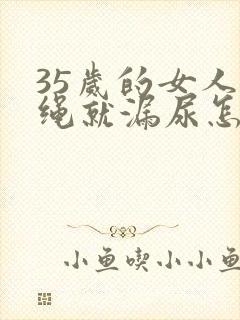 35歲的女人
绳就漏尿怎
小鱼喫小小鱼